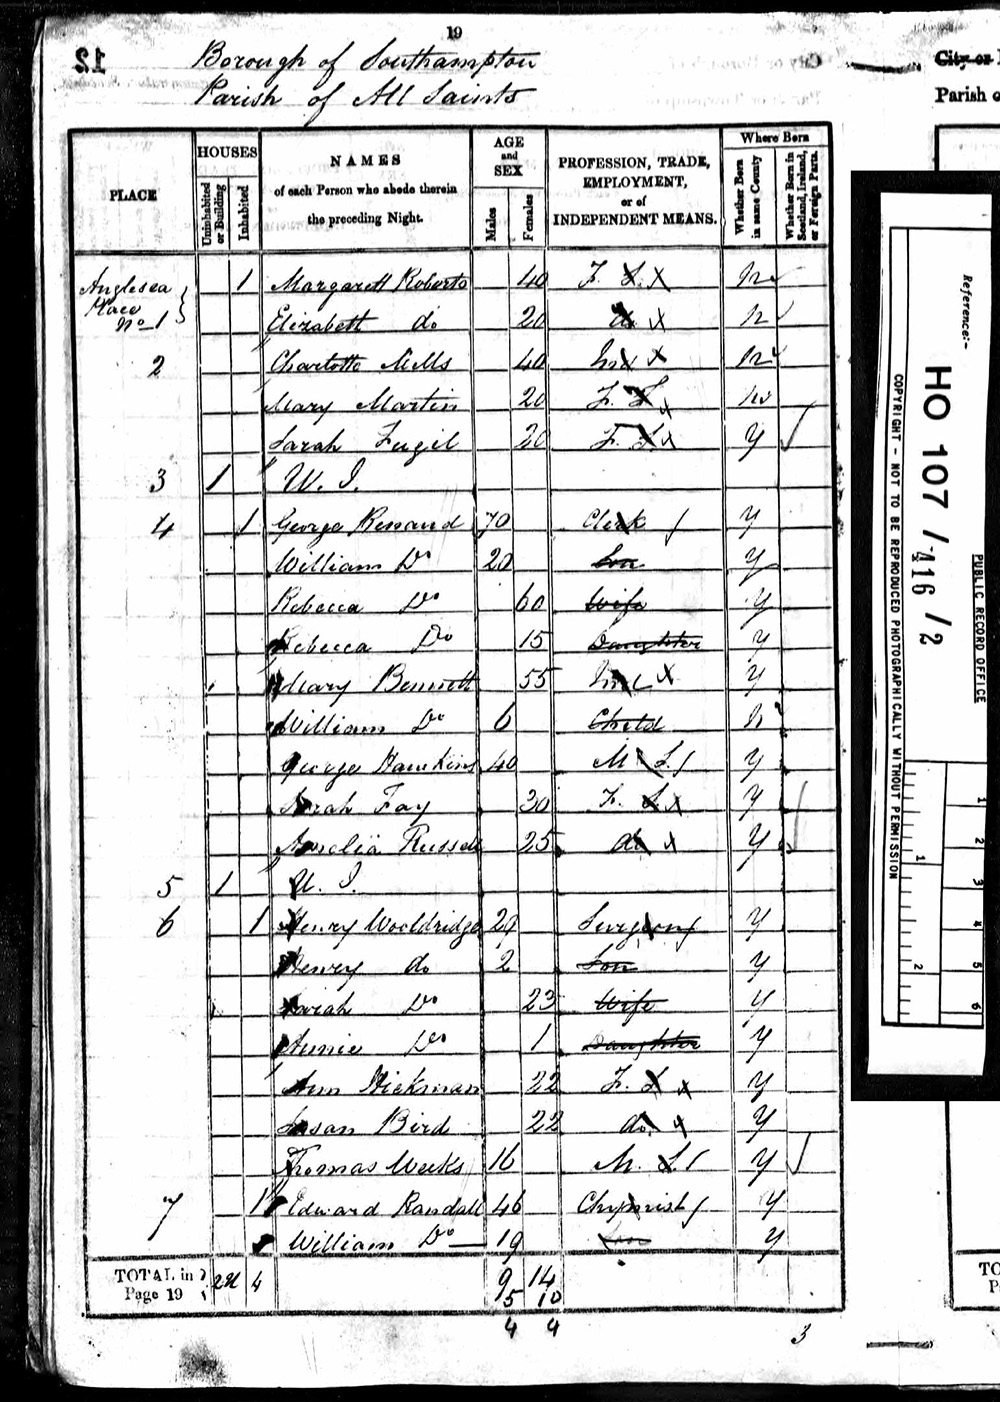 19
12
Borough of Southampton
Parish of All Saints
City or
Parish o
PLACE
HOUSES
Uninhabited or Building
Inhabited
NAMES
of each Person who abode therein
the preceding Night.
AGE
and
SEX
Males
Females
PROFESSION, TRADE,
EMPLOYMENT,
or of
INDEPENDENT MEANS.
Where Born
Whether Born in same County
Whether Born in Scotland, Ireland, or Foreign Parts.
Anglesea Place No 1 1 Margarett Roberts 40 F. S. N
Elizabeth do 20 do N
2 Charlotte Mills 40 Ind N
Mary Martin 20 F. S. N
Sarah Fugil 20 F. S. Y
3 1 U. I.
4 1 George Renaud 70 Clerk Y
William Do 20 Son Y
Rebecca Do 60 Wife Y
Rebecca Do 15 Daughter Y
Mary Bennett 55 Ind Y
William Do 6 Child N
George Hawkins 40 M S Y
Sarah Fay 30 F. S. Y
Amelia Russell 25 do Y
5 1 U. I.
6 1 Henry Wooldridge 29 Surgeon Y
Henry do 2 Son Y
Sarah Do 23 Wife Y
Annie Do 1 Daughter Y
Ann Hickman 22 F. S Y
Susan Bird 22 do. Y
Thomas Weeks 16 M. S Y
7 1 Edward Randall 46 Chymist Y
William Do 19 Son Y
TOTAL in
Page 19
2 4 9 14
5 10
4 4
3
TO
P
Reference:-
HO 107 / 416 / 2
PUBLIC RECORD OFFICE
COPYRIGHT - NOT TO BE REPRODUCED PHOTOGRAPHICALLY WITHOUT PERMISSION
1
2
3
4
5
6
1
2